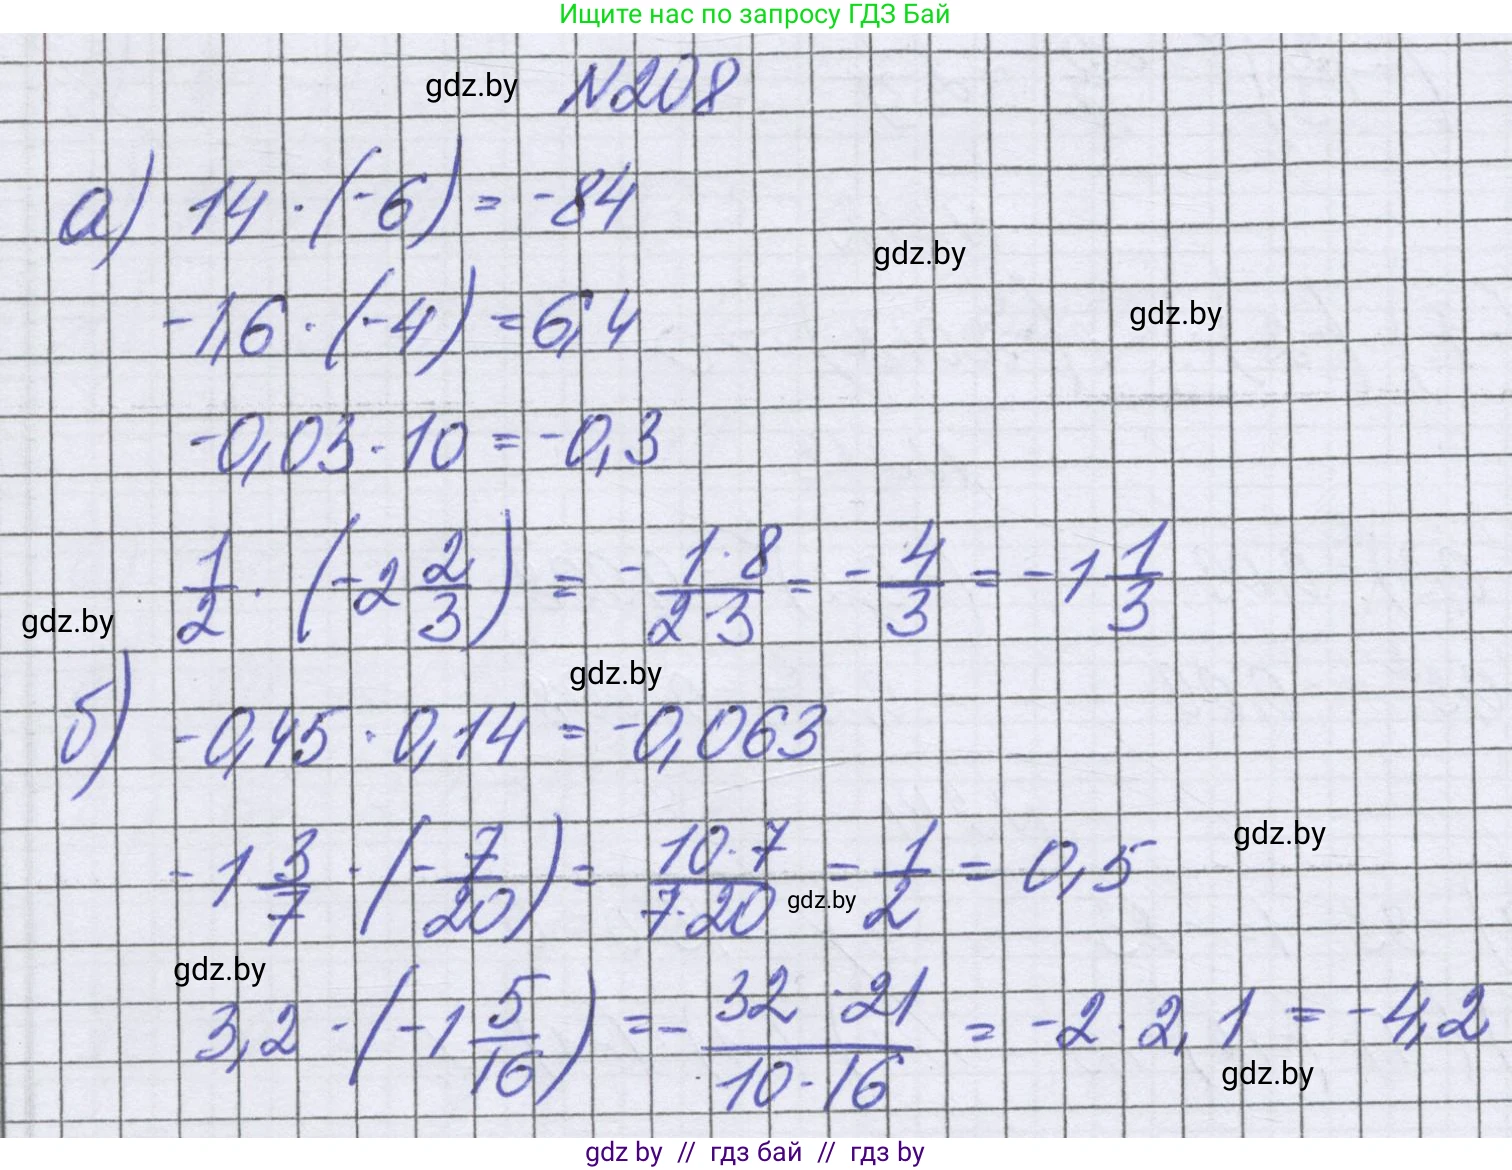 Ищите нас по запросу ГДЗ Бай
gdz.by N208
а) 14 · (-6) = -84
gdz.by
-1,6 · (-4) = 6,4
gdz.by
-0,03 · 10 = -0,3
1/2 · (-2 2/3) = - 1·8/2·3 = - 4/3 = -1 1/3
gdz.by
gdz.by
б) -0,45 · 0,14 = -0,063
gdz.by
-1 3/7 · (- 7/20) = 10·7/7·20 = 1/2 = 0,5
gdz.by
gdz.by
3,2 · (-1 5/16) = - 32·21/10·16 = -2 · 2,1 = -4,2
gdz.by
gdz by // гдз бай // гдз by